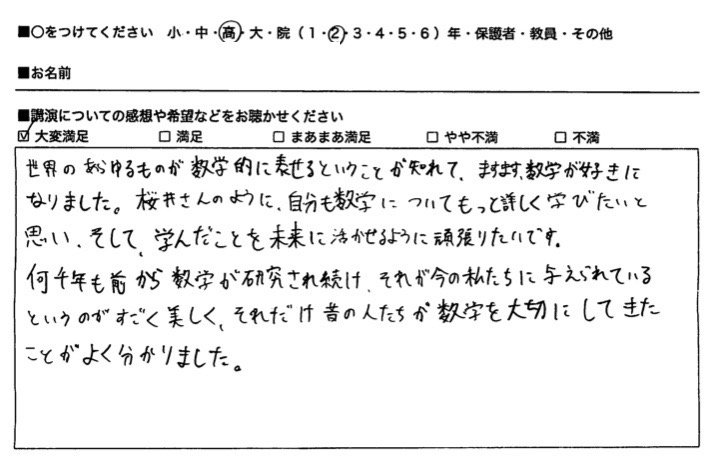 ■○をつけてください 小・中・高・大・院(1・2・3・4・5・6)年・保護者・教員・その他
■お名前
■講演についての感想や希望などをお聴かせください
☑ 大変満足 □ 満足 □ まあまあ満足 □ やや不満 □ 不満
世界のあらゆるものが数学的に表せるということが知れて、ますます数学が好きに
なりました。桜井さんのように、自分も数学についてもっと詳しく学びたいと
思い、そして、学んだことを未来に活かせるように頑張りたいです。
何千年も前から数学が研究され続け、それが今の私たちに与えられている
というのがすごく美しく、それだけ昔の人たちが数学を大切にしてきた
ことがよく分かりました。